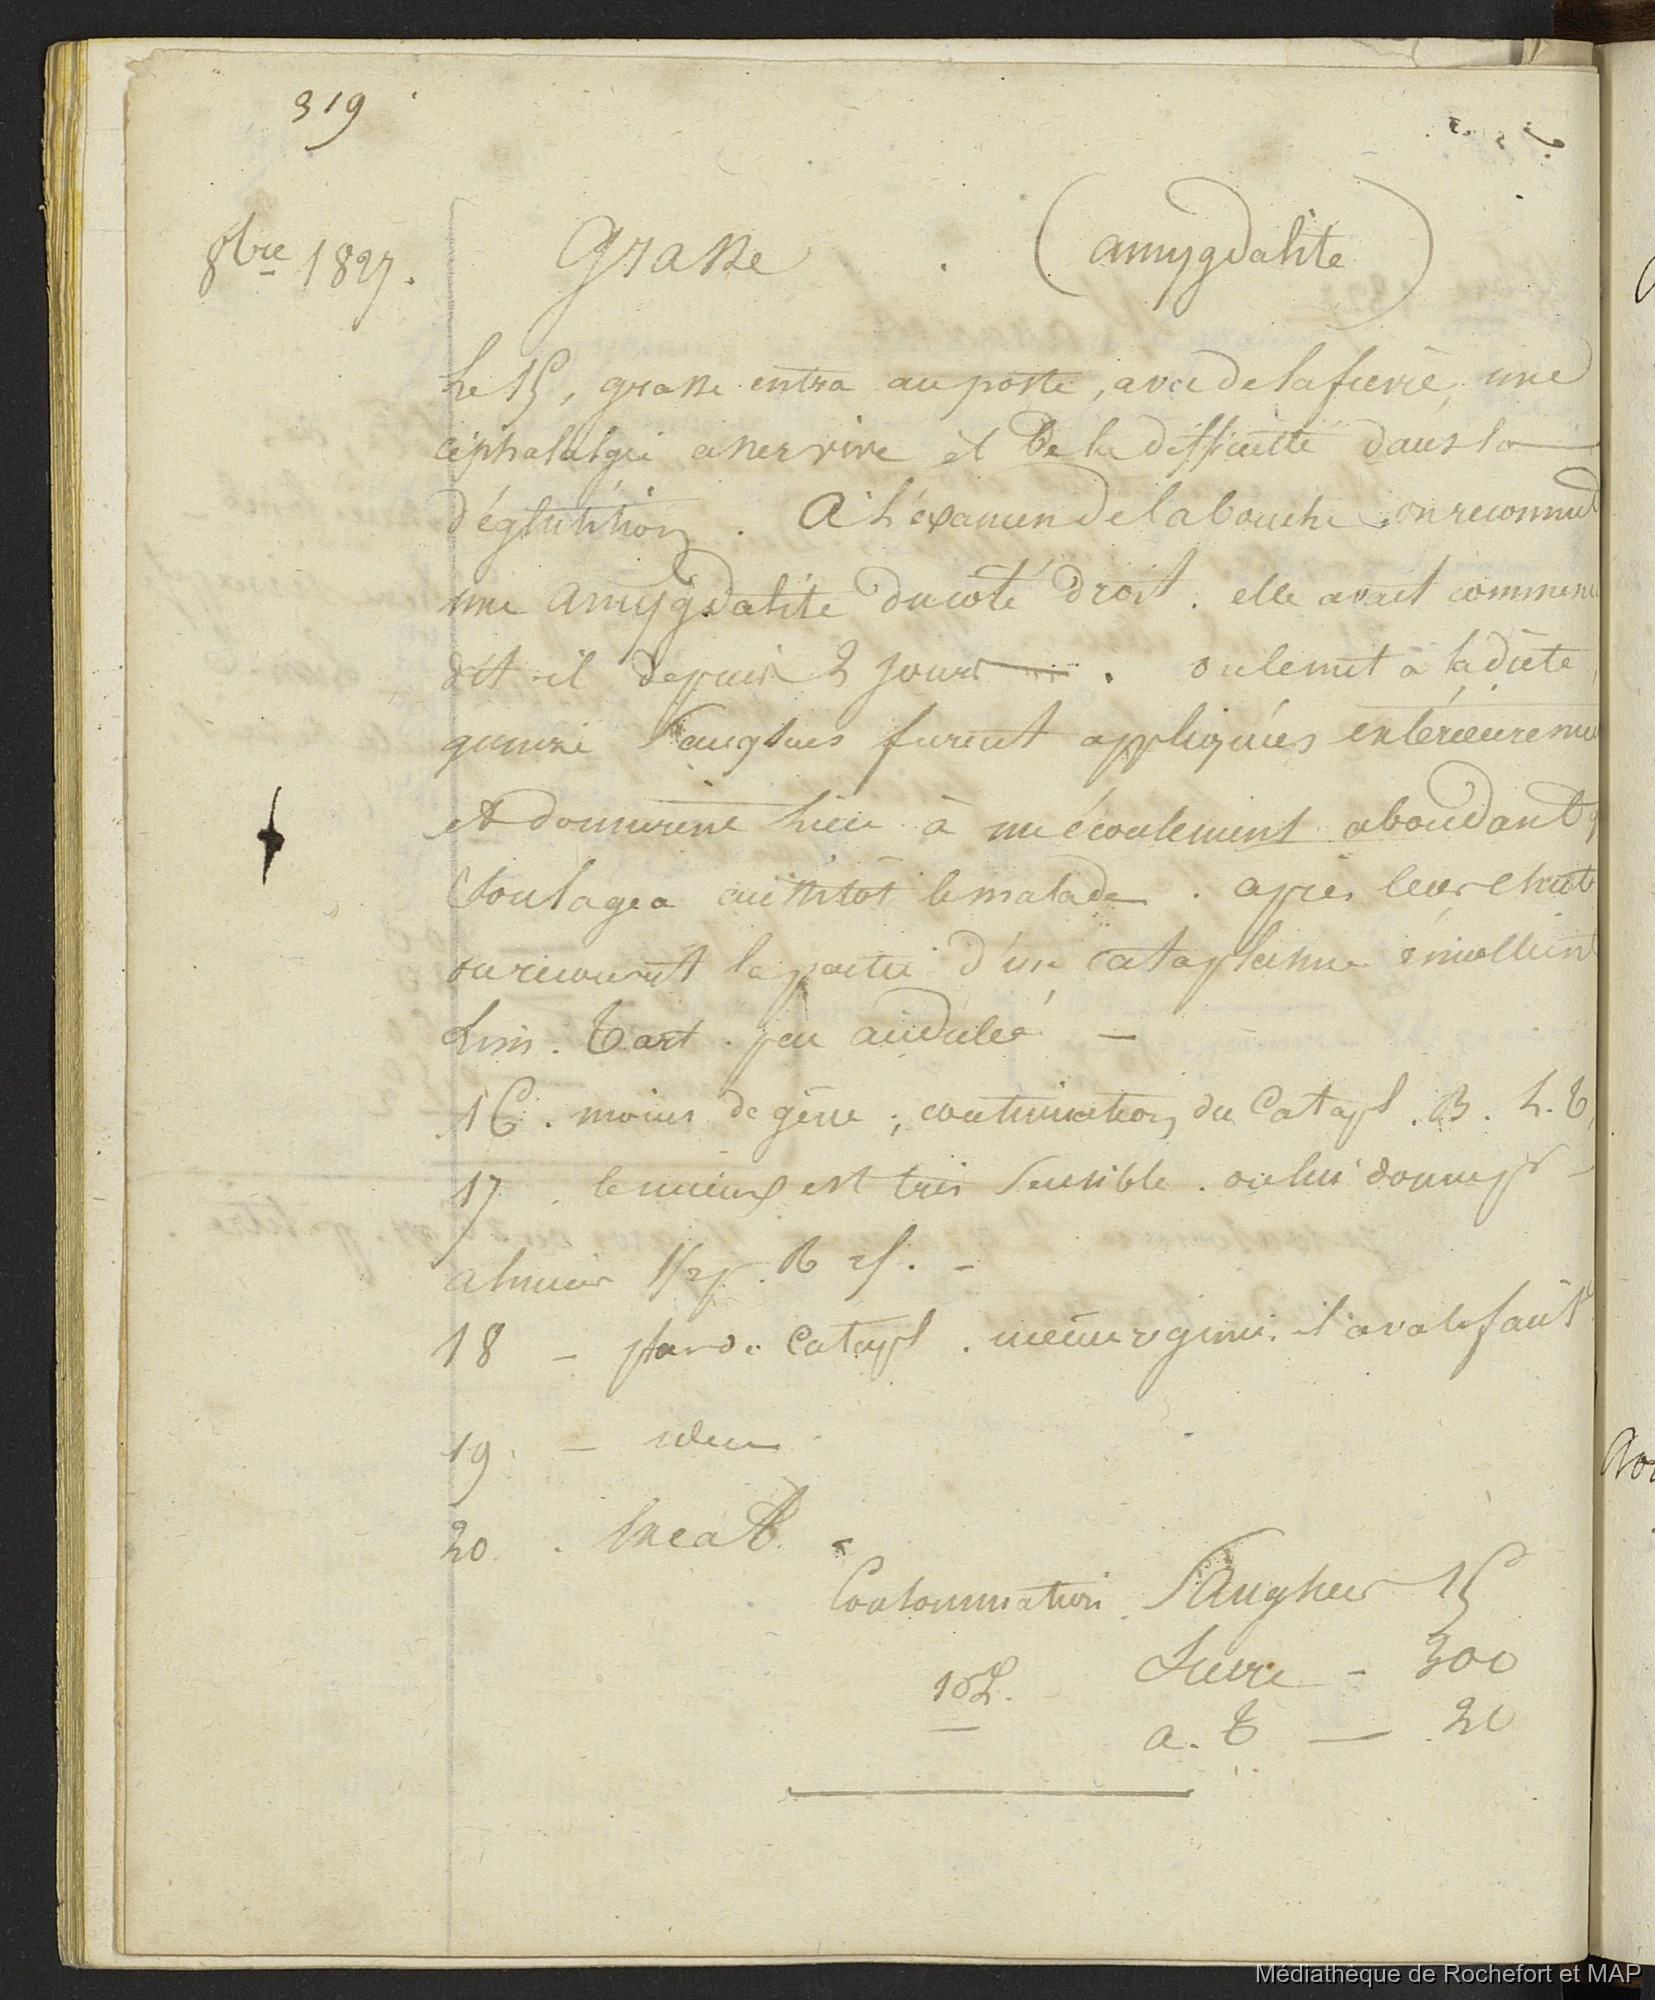 319
8bre 1827.
Grasse . (amygdalite)
Le 15, grasse entra au poste, avec de la fievre, une
céphalalgie assez vive et De la difficulté dans la
déglutition. A L'éxamen de la bouche, on reconnut
une amygdalite du coté droit. elle avait commencé
dit-il depuis 2 jours. on le mit à la diète,
quinze Sangsues furent appliquées extérieurement
et donnerent lieu à un écoulement abondant q
Soulagea aussitôt le malade. après leur chute
on recouvrit la partie d'un cataplasme émollient
Lim. Tart. peu acidulée —
16. moins de gêne; continuation du Catapl. B. L. T,
17. le mieux est très Sensible. on lui donne
18 – plus de Catapl. même regime. il avale sans
19. – idem
20. Exeat. -
Consommation. Sangsues 15
Sucre – 300
a. T — 20